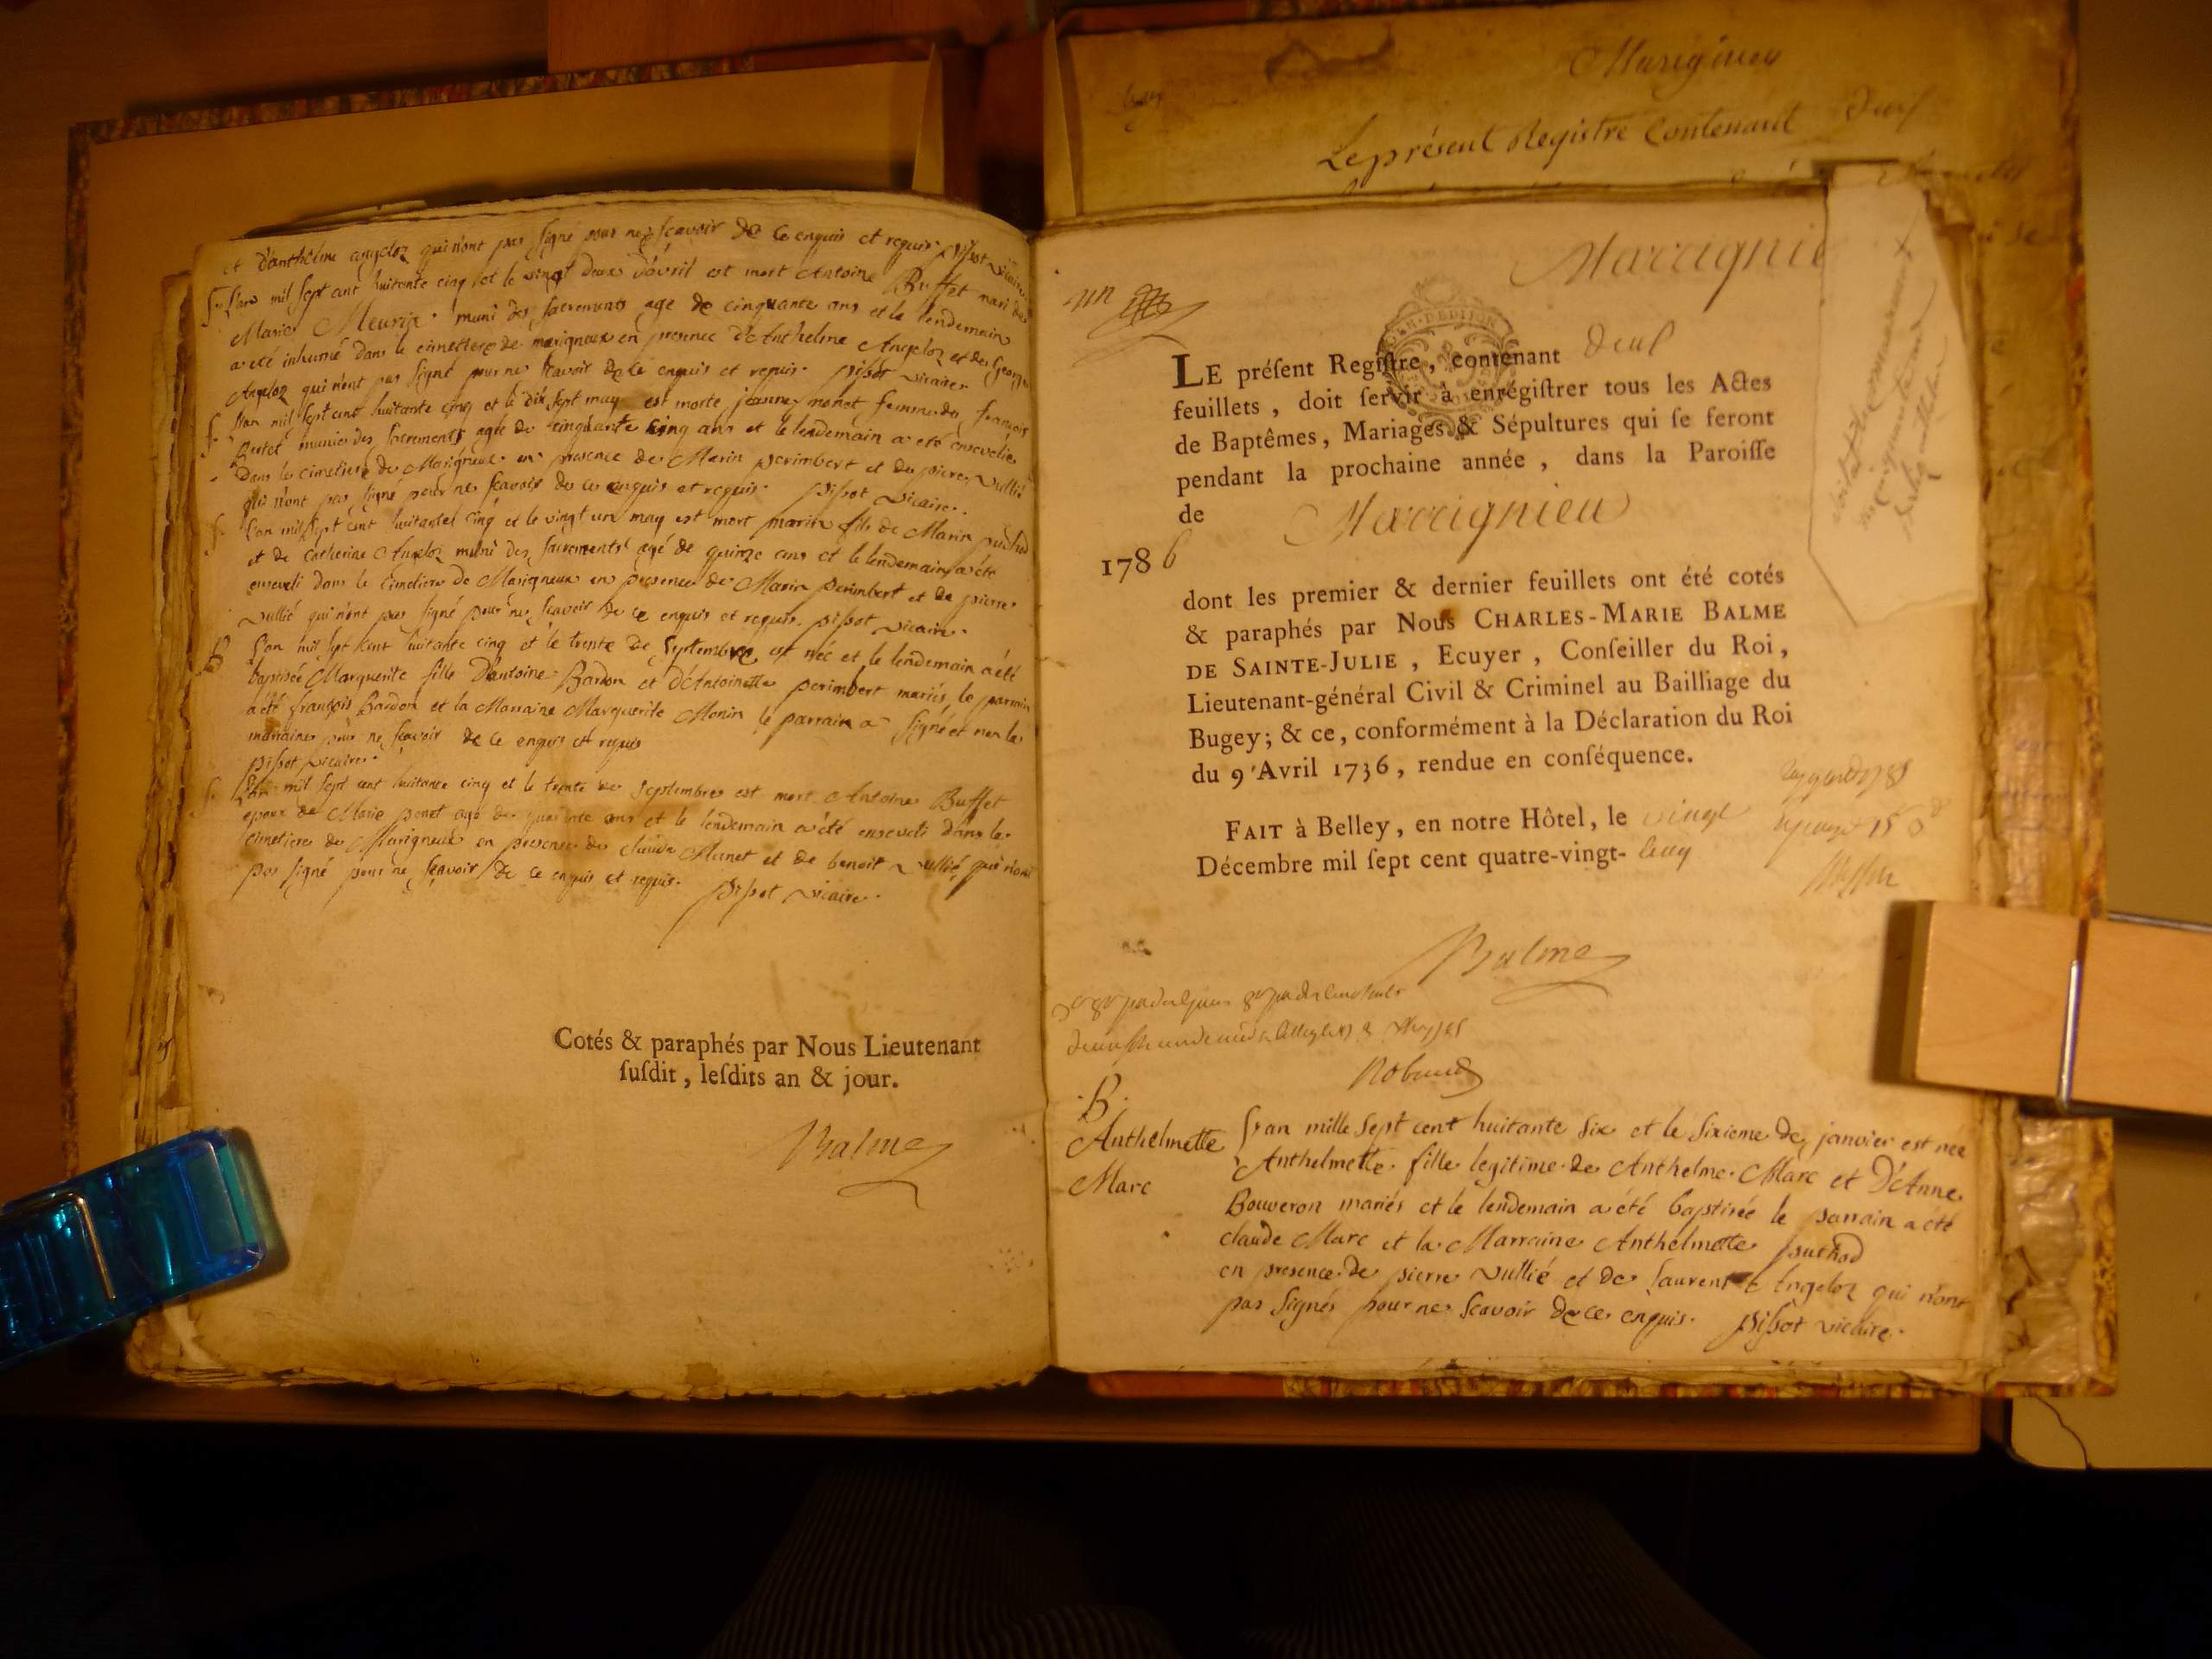 et d'anthelme angeloz qui n'ont pas signé pour ne sçavoir de ce enquis et requis pissot vicaire
S. L'an mil sept cent huitante cinq et le vingt deux d'avril est mort Antoine Buffet mari de
Marie Meurix muni des sacrements agé de cinquante ans et le lendemain
a été inhumé dans le cimettiere de marigneux en presence d'Anthelme Angeloz et de George
Angeloz qui n'ont pas signé pour ne sçavoir de ce enquis et requis. pissot vicaire
S. L'an mil sept cent huitante cinq et le dix sept may est morte jeanne femme de françois
munie des sacrements agée de cinquante cinq ans et le lendemain a été ensevelie
dans le cimetiere de Marigneux en presence de Marin perimbert et de pierre vullié
qui n'ont pas signé pour ne sçavoir de ce enquis et requis. pissot vicaire.
S. L'an mil sept cent huitante cinq et le vingt un may est mort marin fils de Marin
et de Catherine Angeloz muni des sacrements agé de quinze ans et le lendemain a été
enseveli dans le cimetiere de Marigneux en presence de Marin perimbert et de pierre
vullié qui n'ont pas signé pour ne sçavoir de ce enquis et requis. pissot vicaire.
B L'an mil sept cent huitante cinq et le trente de septembre est née et le lendemain a été
baptisée Marguerite fille d'antoine Bardon et d'Antoinette perimbert mariés, le parrain
a été françois Bardon et la Marraine Marguerite Monin le parrain a signé et non la
marraine pour ne sçavoir de ce enquis et requis
pissot vicaire.
S. L'an mil sept cent huitante cinq et le trente de septembre est mort Antoine Buffet
epoux de Marie ponet agé de quarante ans et le lendemain a été enseveli dans le
cimetiere de Marigneux en presence de claude Munet et de benoit vullié qui n'ont
pas signé pour ne sçavoir de ce enquis et requis. pissot vicaire.
Cotés & paraphés par Nous Lieutenant
ſuſdit, leſdits an & jour.
Balme
Marigneu
Le présent Registre Contenant Deux
Marcignie
un
LE préſent Regiſtre, contenant deux
feuillets, doit ſervir à enrégiſtrer tous les Actes
de Baptêmes, Mariages & Sépultures qui ſe feront
pendant la prochaine année, dans la Paroiſſe
de Marcignieu
1786
dont les premier & dernier feuillets ont été cotés
& paraphés par Nous CHARLES-MARIE BALME
DE SAINTE-JULIE, Ecuyer, Conſeiller du Roi,
Lieutenant-général Civil & Criminel au Bailliage du
Bugey; & ce, conformément à la Déclaration du Roi
du 9 Avril 1736, rendue en conſéquence.
FAIT à Belley, en notre Hôtel, le vingt
Décembre mil ſept cent quatre-vingt-cinq
Balme
B.
Anthelmette
Marc
L'an mille sept cent huitante six et le sixieme de janvier est née
Anthelmette fille legitime de Anthelme Marc et d'Anne
Bouveron mariés et le lendemain a été baptisée le parrain a été
claude Marc et la Marraine Anthelmette puthod
en presence de pierre vullié et de laurent Angeloz qui n'ont
pas signés pour ne sçavoir de ce enquis. pissot vicaire.